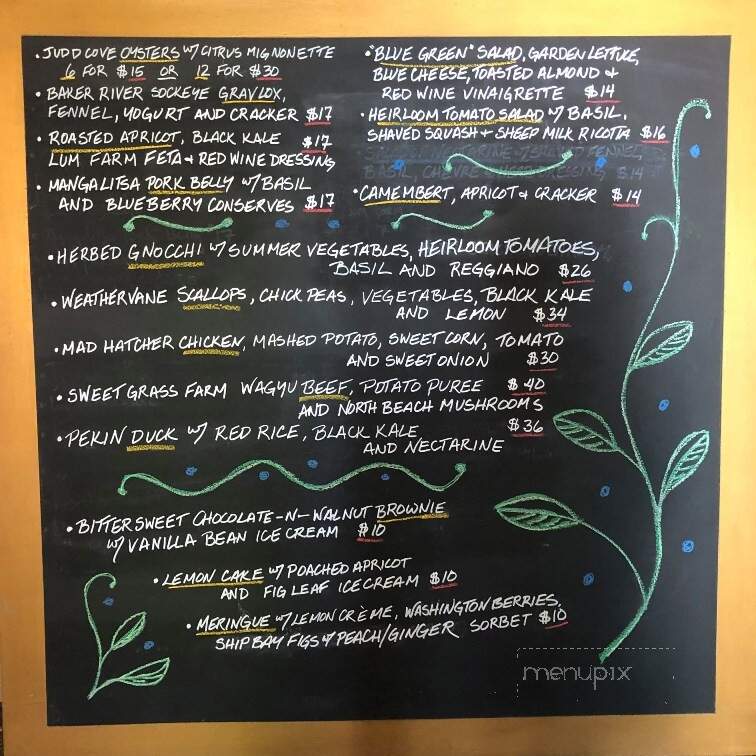 • JUDD COVE OYSTERS W/ CITRUS MIGNONETTE
6 FOR $15 OR 12 FOR $30
• BAKER RIVER SOCKEYE GRAVLOX,
FENNEL, YOGURT AND CRACKER $17
• ROASTED APRICOT, BLACK KALE $17
LUM FARM FETA + RED WINE DRESSING
• MANGALITSA PORK BELLY W/ BASIL
AND BLUEBERRY CONSERVES $17
• "BLUE GREEN" SALAD, GARDEN LETTUCE,
BLUE CHEESE, TOASTED ALMOND +
RED WINE VINAIGRETTE $14
• HEIRLOOM TOMATO SALAD W/ BASIL,
SHAVED SQUASH + SHEEP MILK RICOTTA $16
FENNEL,
BASIL, $14
• CAMEMBERT, APRICOT + CRACKER $14
• HERBED GNOCCHI W/ SUMMER VEGETABLES, HEIRLOOM TOMATOES,
BASIL AND REGGIANO $26
• WEATHERVANE SCALLOPS, CHICK PEAS, VEGETABLES, BLACK KALE
AND LEMON $34
• MAD HATCHER CHICKEN, MASHED POTATO, SWEET CORN, TOMATO
AND SWEET ONION $30
• SWEET GRASS FARM WAGYU BEEF, POTATO PUREE $40
AND NORTH BEACH MUSHROOMS
• PEKIN DUCK W/ RED RICE, BLACK KALE $36
AND NECTARINE
• BITTERSWEET CHOCOLATE-N-WALNUT BROWNIE
W/ VANILLA BEAN ICE CREAM $10
• LEMON CAKE W/ POACHED APRICOT
AND FIG LEAF ICE CREAM $10
• MERINGUE W/ LEMON CRÈME, WASHINGTON BERRIES,
SHIP BAY FIGS W/ PEACH/GINGER SORBET $10
menupix